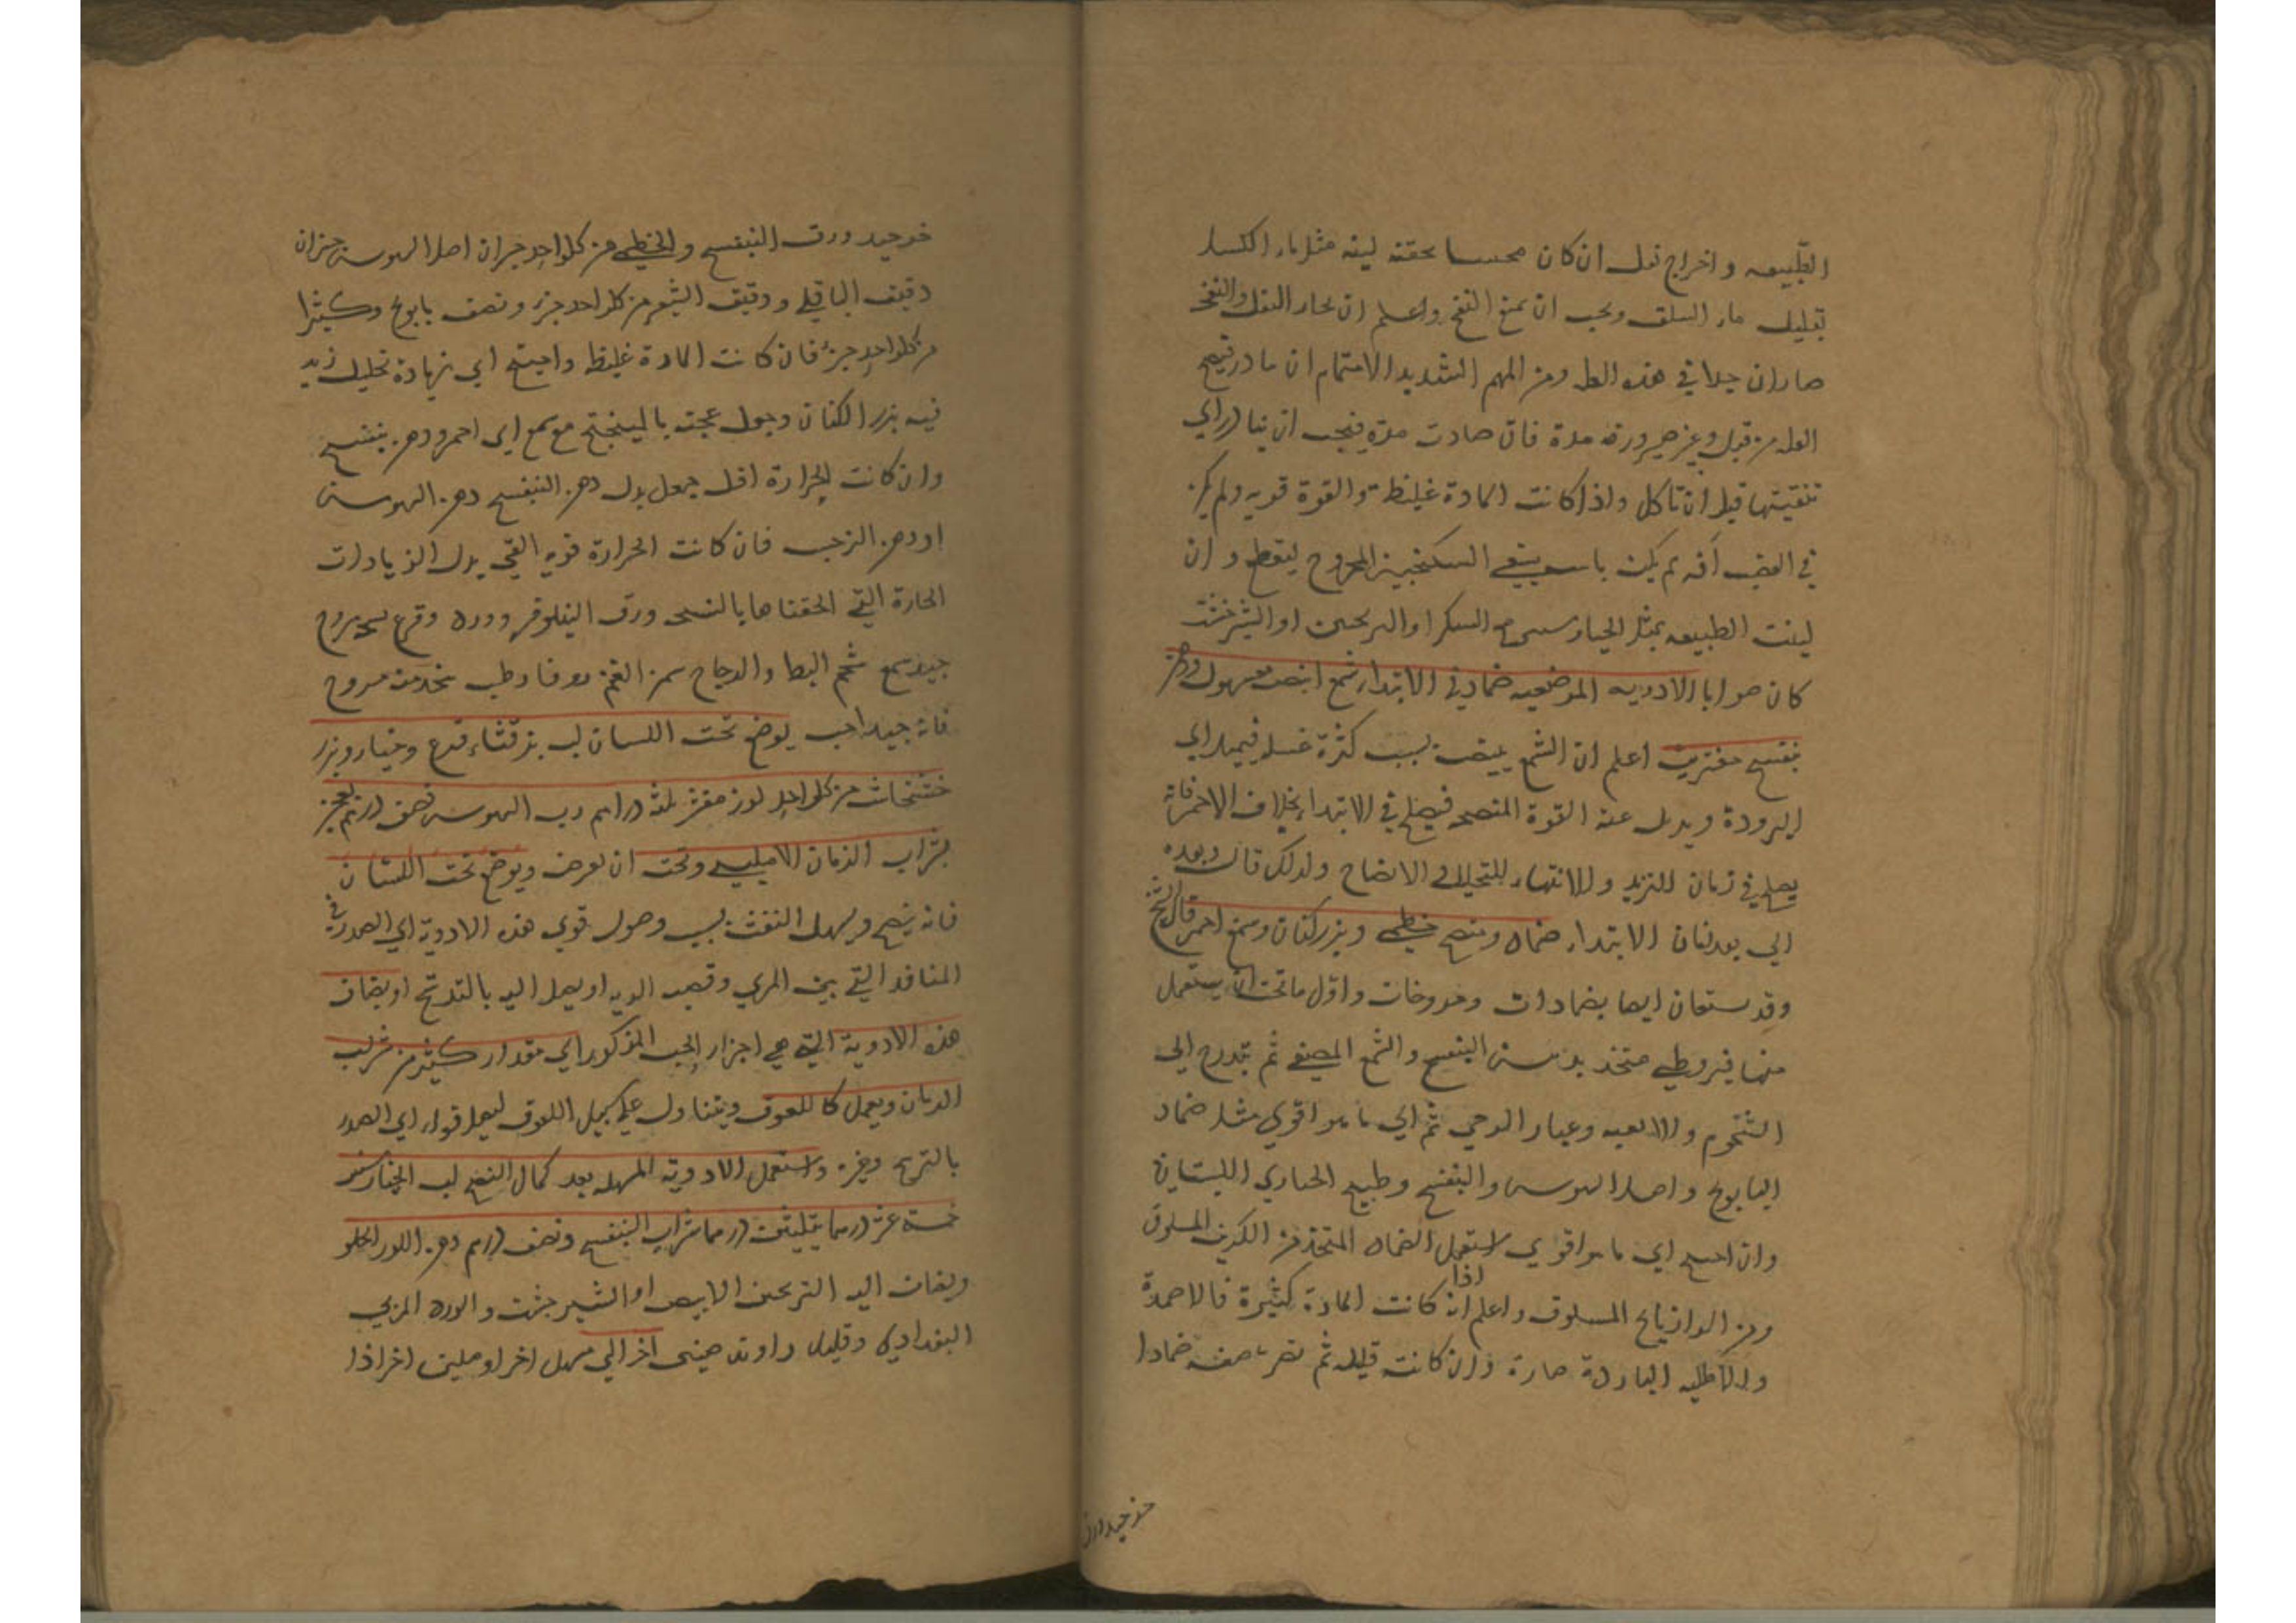 الطبيعه و اخراج ثفل ان كان محتبسا بحقنه لينه مثل ماء الكشك
بقليل ماء السلق ويجب ان يمنع النفخ واعلم ان بخار الثفل والنفخ
ضاران جدا في هذه العله ومن المهم الشديد الاهتمام ان يبادر تنضيج
العله من قبل صيرورته مدة فان صارت مدة فيجب ان يبادر الي
تنقيتها قبل ان تاكل واذا كانت المادة غليظة والقوة قويه ولم يكن
في العصب آفه لم يكن باس بسقي السكنجبين الممزوج ليقطع و ان
لينت الطبيعه بمثل الخيارشنبر مع السكر او الترنجبين او الشيرخشت
كان صوابا الادويه الموضعيه ضماد في الابتدا شمع ابيض مغسول ودهن
بنفسج مفتريت اعلم ان الشمع يبيض بسبب كثرة غسله فيميل الي
البرودة ويزول عنه القوة المنضجه فيصلح في الابتدا بخلاف الاحمر فانه
يصلح في زمان التزيد والانتهاء للتحليل والانضاج ولذلك قال وبعده
الي بعد زمان الابتداء ضماد ومنضج خطمي وبزر كتان وشمع احمر قال الشيخ
وقد يستعان ايضا بضمادات ومروخات واول ما يجب ان يستعمل
منها قيروطي متخذ بدهن البنفسج والشمع المصفي ثم يتدرج الي
الشحوم والالعبه وغبار الرحي ثم الي ما هو اقوي مثل ضماد
البابونج واصل السوسن والبنفسج وطبيخ الخبازي البستاني
وان احتيج الي ما هو اقوي استعمل الضماد المتخذ من الكرنب المسلوق
ومن الرازيانج المسلوق واعلم ان اذا كانت المادة كثيرة فالاضمدة
والاطليه الباردة ضارة وان كانت قليله ثم ضماد
خوجيد ورق
خوجيد ورق البنفسج والخطمي من كل واحد جزان اصل السوسن جزان
دقيق الباقلي ودقيق الشعير من كل واحد جزء ونصف بابونج وكثيرا
من كل واحد جزء فان كانت المادة غليظة واحتيج الي زيادة تحليل زيد
فيه بزر الكتان وجعل عجنه بالميبختج مع شمع احمر ودهن بنفسج
وان كانت الحرارة اقل جعل بدل دهن البنفسج دهن السوسن
او دهن النرجس فان كانت الحرارة قويه القي بدل الزيادات
الحارة التي الحقناها بالنسخه ورق النيلوفر وورد وقرع نسخه مروخ
جيد شمع شحم البط والدجاج سمن الغنم زوفا رطب يتخذ منه مروخ
فانه جيد احب يوضع تحت اللسان لب بزر قثاء قرع وخيار وبزر
خشخاش من كل واحد لوز مقشر ثلثة دراهم رب السوس نصف درهم يعجن
بشراب الرمان الامليسي وتحت ان يعرض ويوضع تحت اللسان
فانه ينضج ويسهل النفث بسبب وصول قوي هذه الادوية الي الصدر في
المنافذ التي بين المري وقصبه الريه او يصل اليه بالتدريج او يضاف
هذه الادوية التي هي اجزاء الحب المذكور الي مقدار كثير من شراب
الرمان ويعمل كاللعوق ويتناول علي سبيل اللعوق ليصل قواه الي الصدر
بالترشح وغيره واستعمل الادوية المسهله بعد كمال النضج لب الخيارشنبر
خمسة عشر درهما بثلثين درهما شراب البنفسج ونصف درهم دهن اللوز الحلو
ويضاف اليه الترنجبين الابيض او الشيرخشت والورد المربي
البغدادي وقليل راوند صيني اخر الي مسهل اخر او ملين اخر اذا